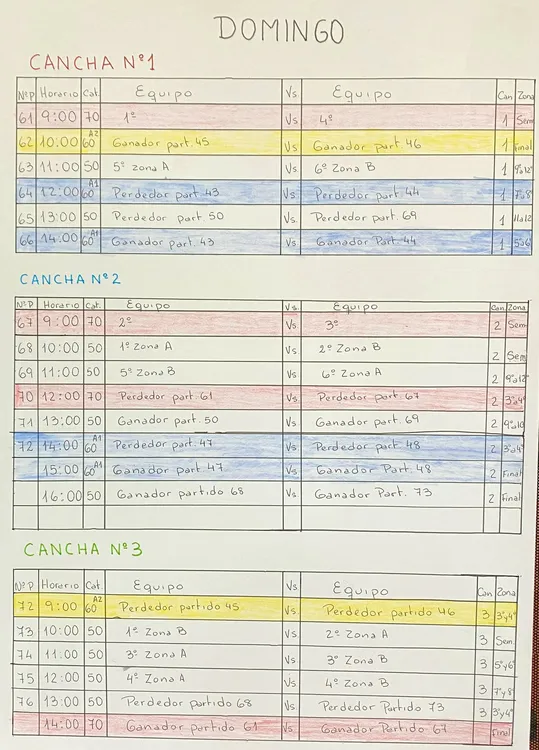 DOMINGO
CANCHA Nº1
NºP Horario Cat. Equipo Vs Equipo Can Zona
61 9:00 70 1º Vs 4º 1 Sem
62 10:00 A2 60 Ganador part. 45 Vs Ganador part. 46 1 Final
63 11:00 50 5º zona A Vs 6º Zona B 1 9º a 12º
64 12:00 A1 60 Perdedor part. 43 Vs Perdedor part. 44 1 7º a 8º
65 13:00 50 Perdedor part 50 Vs. Perdedor part. 69 1 11 a 12
66 14:00 A1 60 Ganador part. 43 Vs Ganador Part. 44 1 5º a 6º
CANCHA Nº2
NºP Horario Cat. Equipo Vs. Equipo Can Zona
67 9:00 70 2º Vs 3º 2 Sem
68 10:00 50 1º Zona A Vs 2º Zona B 2 Sem
69 11:00 50 5º Zona B Vs 6º Zona A 2 9º a 12
70 12:00 70 Perdedor part. 61 Vs Perdedor part. 67 2 3º a 4º
71 13:00 50 Ganador part. 50 Vs Ganador part. 69 2 9º a 10
72 14:00 A1 60 Perdedor part. 47 Vs Perdedor part. 48 2 3º a 4º
15:00 A1 60 Ganador part. 47 Vs Ganador Part. 48 2 Final
16:00 50 Ganador partido 68 Vs Ganador Part. 73 2 Final
CANCHA Nº3
Nº P Horario Cat. Equipo Vs Equipo Can Zona
72 9:00 A2 60 Perdedor partido 45 Vs Perdedor partido 46 3 3º y 4º
73 10:00 50 1º Zona B Vs 2º Zona A 3 Sem.
74 11:00 50 3º Zona A Vs 3º Zona B 3 5º y 6º
75 12:00 50 4º Zona A Vs 4º Zona B 3 7º y 8º
76 13:00 50 Perdedor partido 68 Vs Perdedor Partido 73 3 3º y 4º
14:00 70 Ganador partido 61 Vs Ganador Partido 67 Final